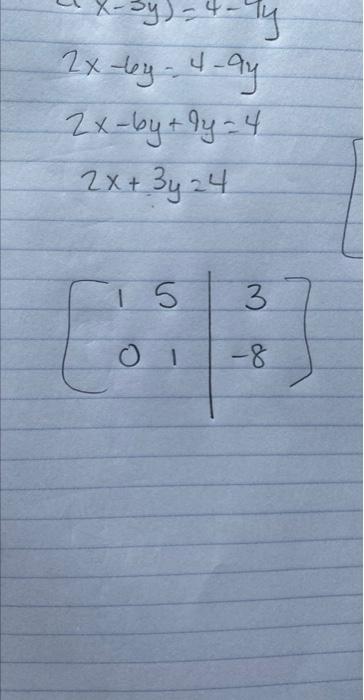 x-3y)=4-9y
2x-6y=4-9y
2x-6y+9y=4
2x+3y=4
1 5 | 3
0 1 | -8